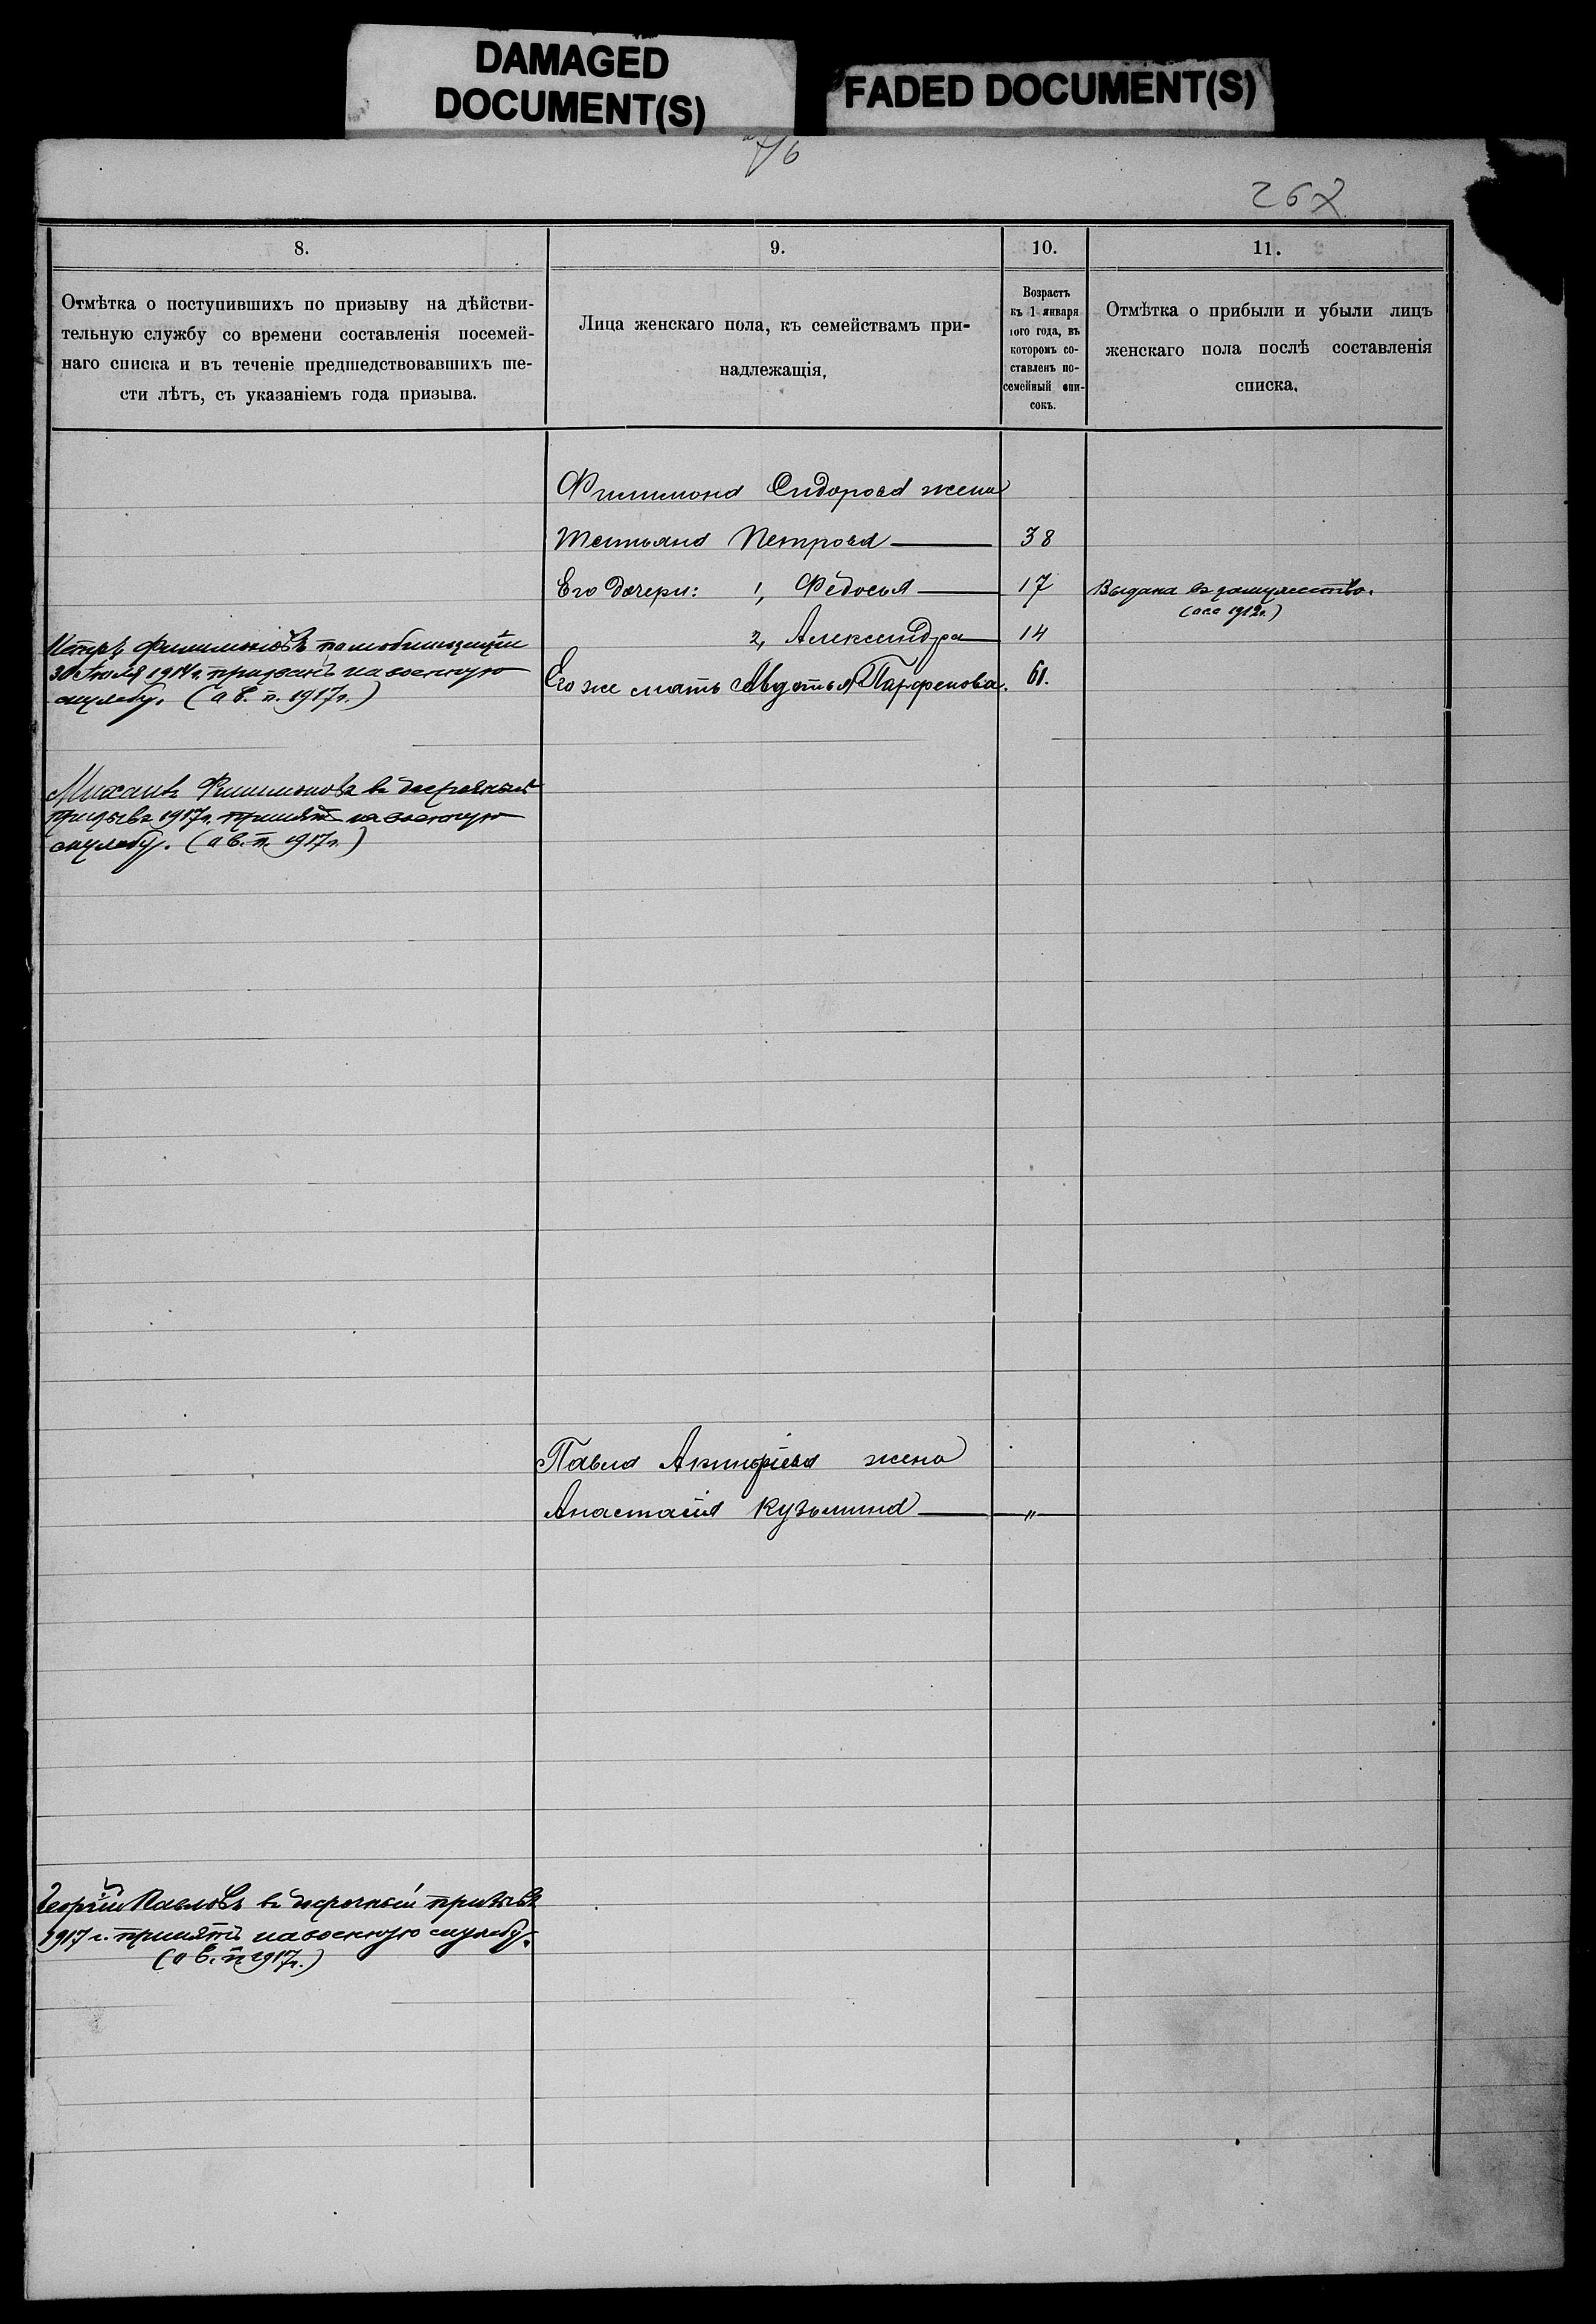 DAMAGED
DOCUMENT(S)
FADED DOCUMENT(S)
267
8.
Отмѣтка о поступившихъ по призыву на дѣйстви-
тельную службу со времени составленія посемей-
наго списка и въ теченіе предшедствовавшихъ ше-
сти лѣтъ, съ указаніемъ года призыва.
9.
Лица женскаго пола, къ семействамъ при-
надлежащія,
10.
Возрастъ
къ 1 января
того года, въ
которомъ со-
ставленъ по-
семейный спи-
сокъ.
11.
Отмѣтка о прибыли и убыли лицъ
женскаго пола послѣ составленія
списка.
Филимона Сидорова жена
Татьяна Петрова 38
Его дочери: 1, Федосья 17 Выдана въ замужество.
(1912г.)
2, Александра 14
Его же мать Авдотья Парфенова. 61.
Петръ Филимоновъ по мобилизаціи
30 Іюля 1914 г. призванъ на военную
службу. (а в. п. 1917 г.)
Михаилъ Филимоновъ въ досрочный
призывъ 1917 г. принятъ на военную
службу. (а в. п. 1917 г.)
Павла жена
Анастасія Кузьмина "
Георгій Павловъ въ досрочный призывъ
1917 г. принятъ на военную службу.
(а в. п. 1917 г.)